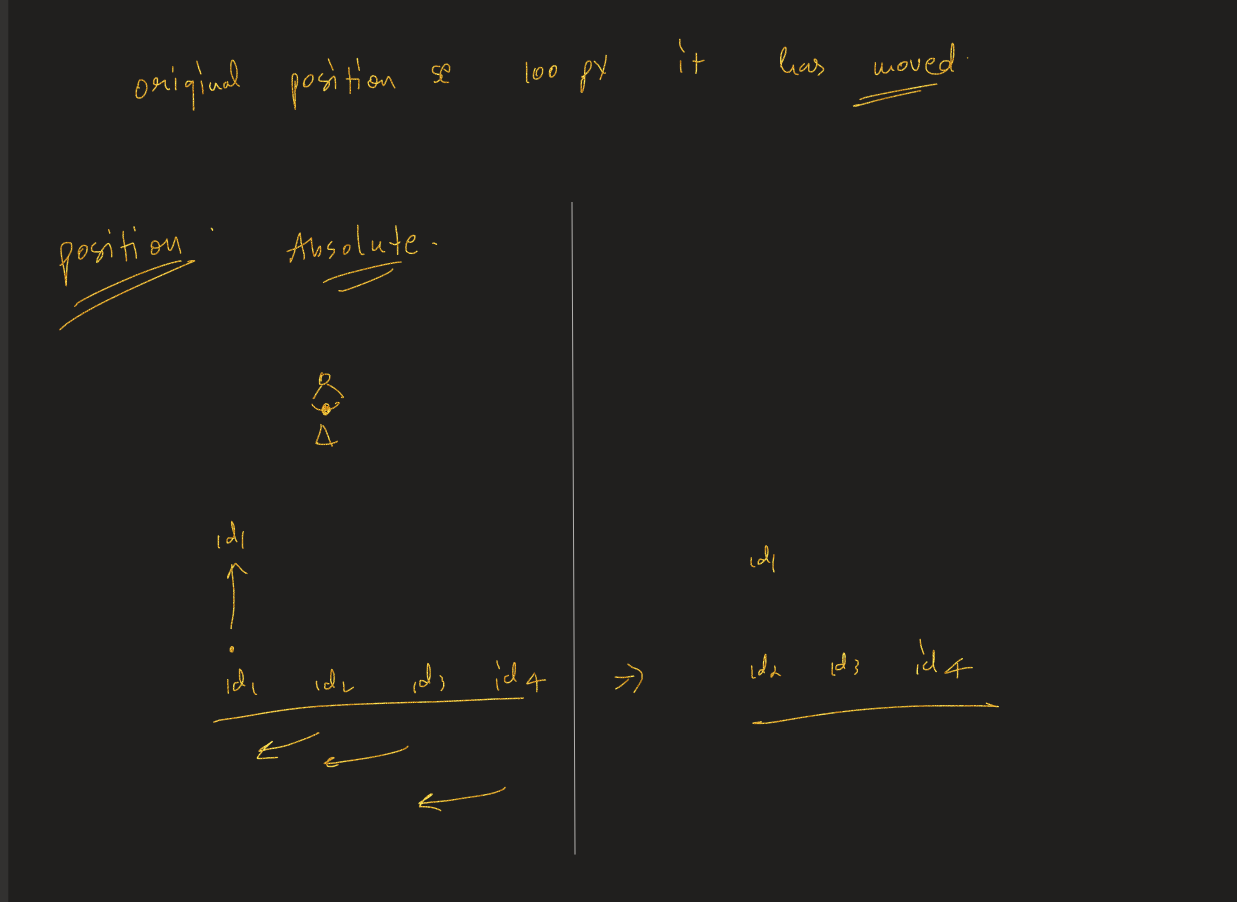 original position se 100 px it has moved.
position. Absolute.
id1
id1
id1 id2 id3 id4 => id2 id3 id4